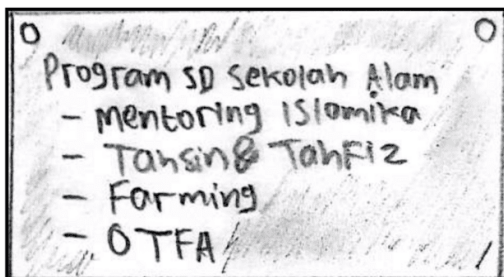 Program SD Sekolah Alam
- Mentoring Islamika
- Tahsin & Tahfiz
- Farming
- OTFA